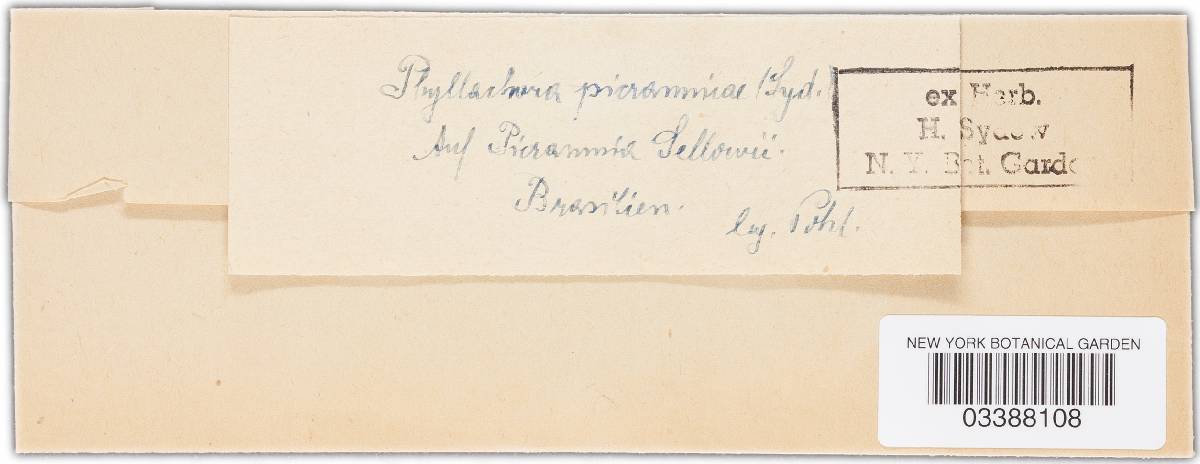 Phyllachora picramniae (Syd.
Auf Picramnia Sellowii.
Brasilien.
leg. Pohl.
ex Herb.
H. Sydow
N. Y. Bot. Garde
NEW YORK BOTANICAL GARDEN
03388108